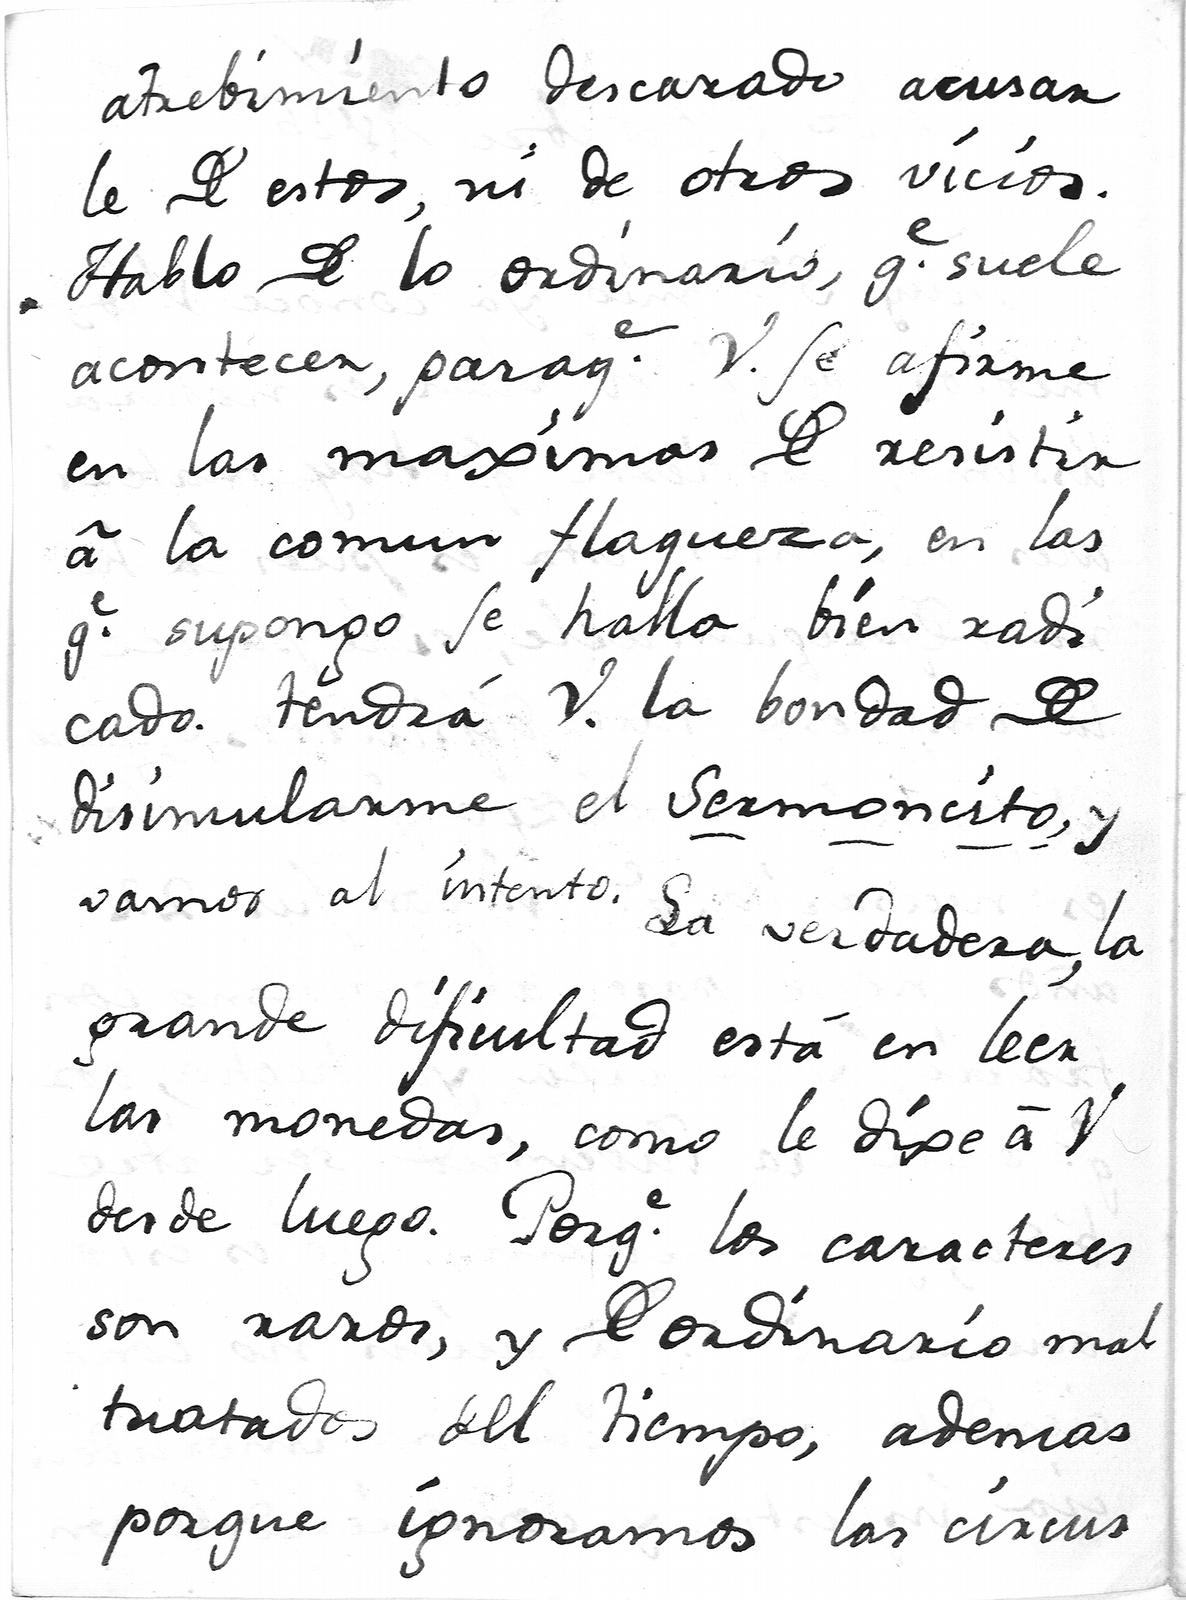 atrebimiento descarado acusar
le de estos, ni de otros vicios.
Hablo de lo ordinario, q.e suele
acontecer, paraq.e V. se afirme
en las maximas de resistir
ã la comun flaqueza, en las
q.e supongo se halla bien radi
cado. tendrá V. la bondad de
disimularme el Sermoncito, y
vamos al intento. La verdadera, la
grande dificultad está en leer
las monedas, como le dixe ā V
desde luego. Porq.e los caracteres
son raros, y de ordinario mal
tratados dell tiempo, ademas
porque ignoramos las circus